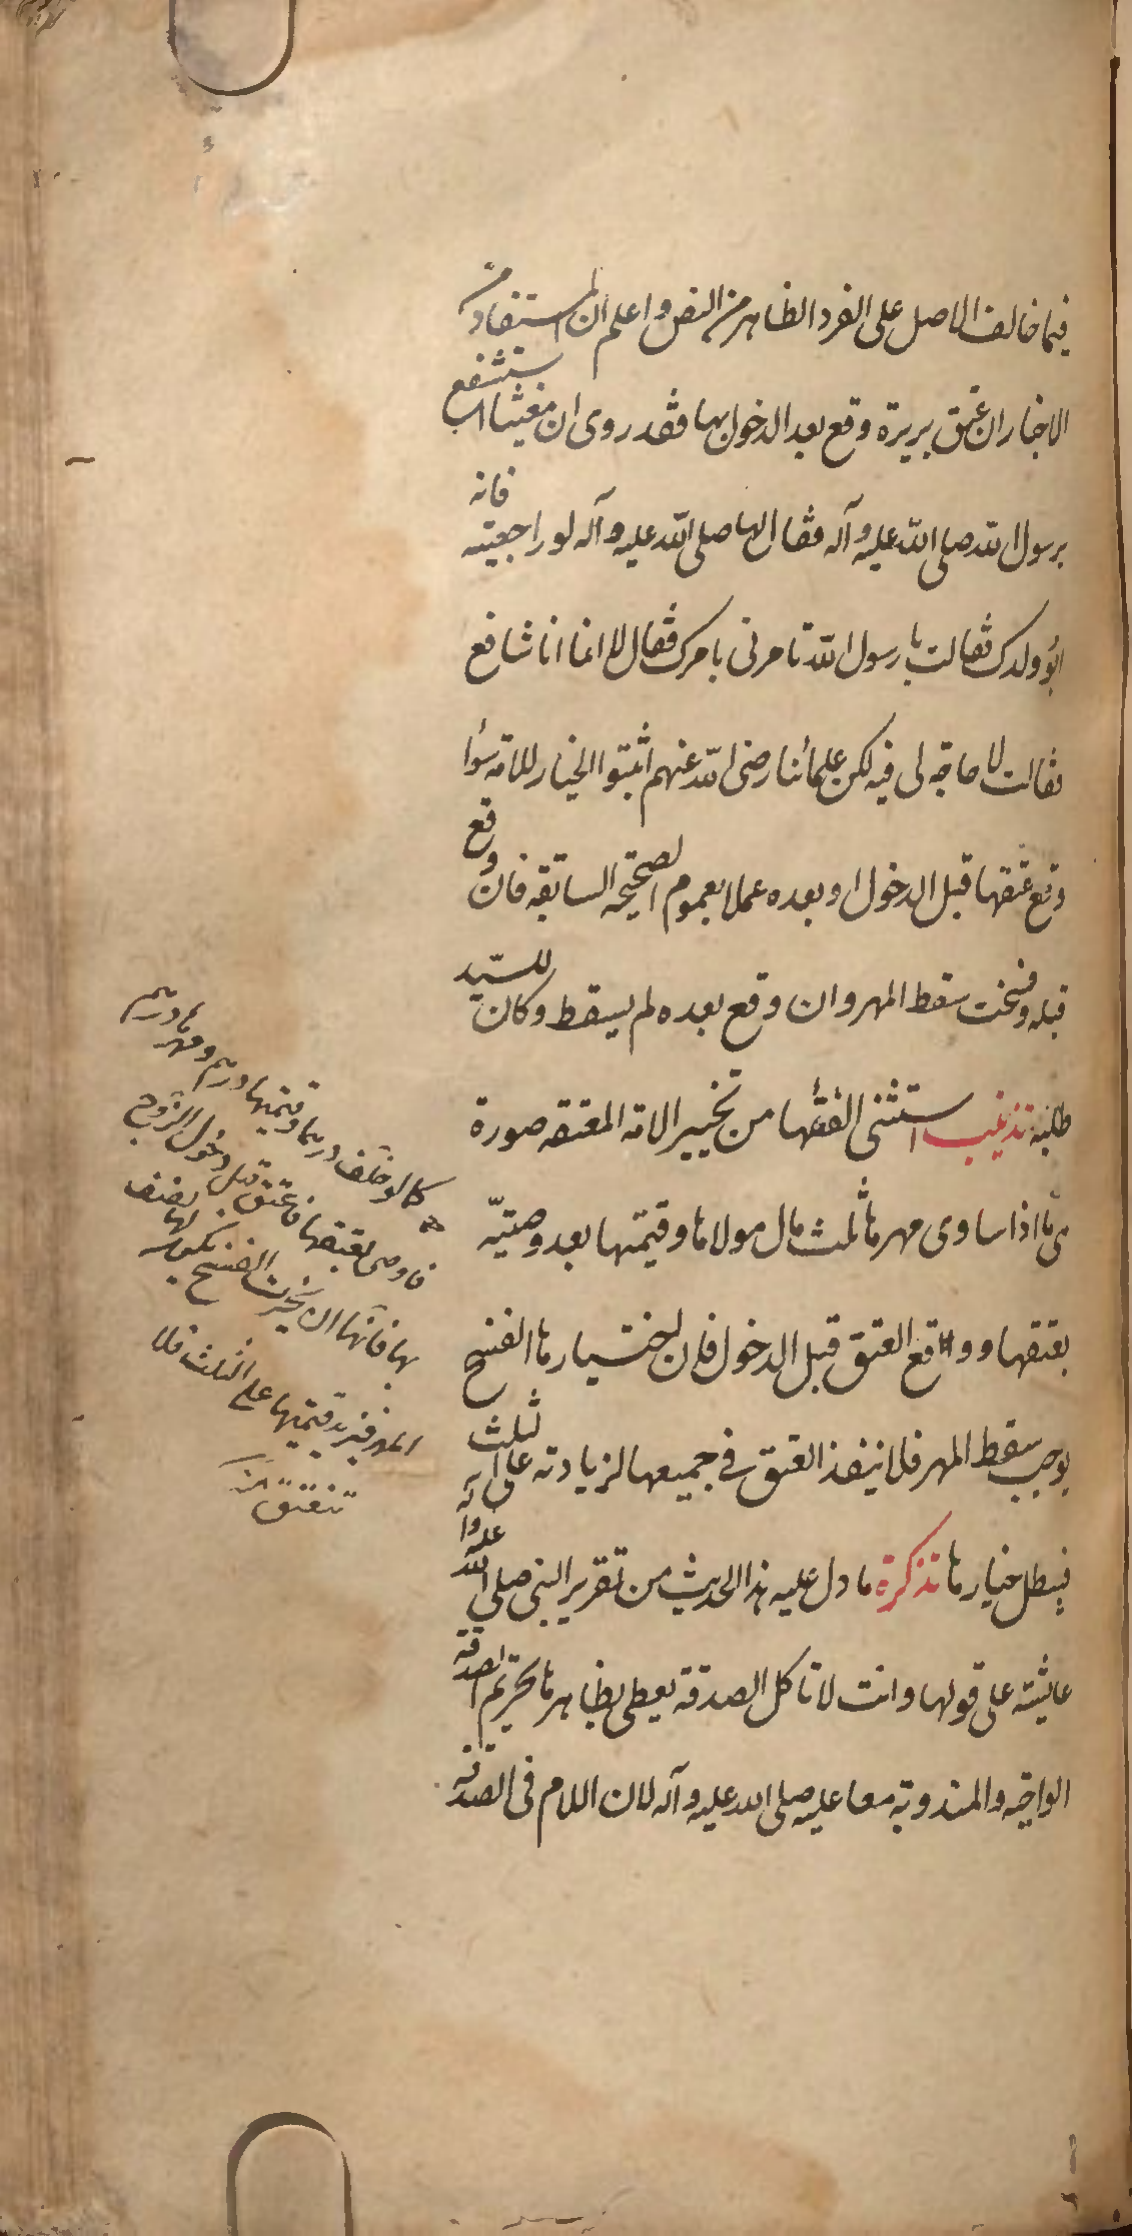 فيما خالف الاصل على الفرد الظاهر من النص واعلم ان المستفاد من
الاخبار ان عتق بريرة وقع بعد الدخول بها فقد روى ان مغيثا استشفع
برسول الله صلى الله عليه وآله فقال لها صلى الله عليه وآله لو راجعتيه فانه
ابو ولدك فقالت يا رسول الله تامرنى بامرك فقال لا انما انا شافع
فقالت لا حاجة لى فيه لكن علمائنا رضى الله عنهم اثبتوا الخيار للامة سوأا
وقع عتقها قبل الدخول او بعده عملا بعموم الصحيحة السابقة فان وقع
قبله وفسخت سقط المهر وان وقع بعده لم يسقط وكان للسيد
طلبه تذنيب استثنى الفقهأ من تخيير الامة المعتقة صورة
هى ما اذا ساوى مهرها ثلث مال مولاها وقيمتها بعد وصيته
بعتقها ووقع العتق قبل الدخول فان اختيارها الفسخ
يوجب سقط المهر فلا ينفذ العتق في جميعها لزيادته على الثلث
فيبطل خيارها تذكرة ما دل عليه هذا الحديث من تقرير النبى صلى الله عليه وآله
عايشة على قولها وانت لا تاكل الصدقة يعطى بظاهره تحريم الصدقة
الواجبة والمندوبة معا عليه صلى الله عليه وآله لان اللام فى الصدقة
كما لو خلف درهما وقيمتها درهم ومهرها درهم
فاوصى بعتقها فاعتق قبل دخول الزوج
بها فانها ان تخيرت الفسخ لها نصف
المهر فيزيد قيمتها على الثلث فلا
تنعتق منه